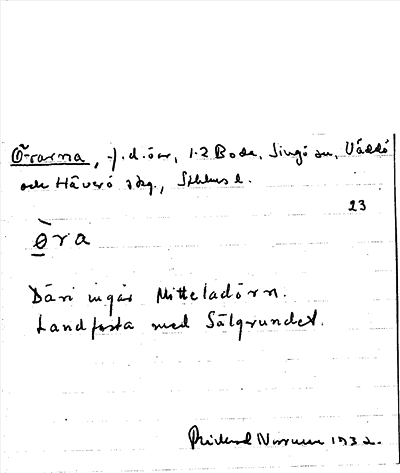 Örarna, f.d. öar, 1-2 Boda, Singö sn, Väddö
och Häverö skg., Sthlms l.
23
Öra
Däri ingår Mitteladörn.
Landfasta med Sälgrundet.
Rickard Norrman 1932.